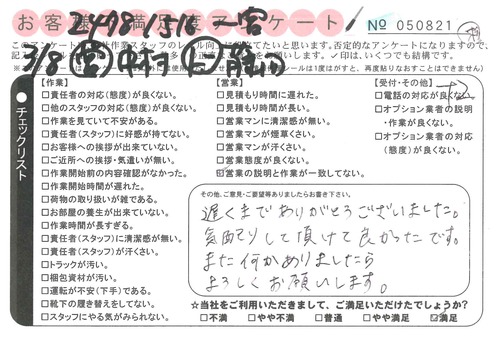 お客様満足度アンケート!
24981516 一客
№ 050821
3/8
中村
【作業】
□責任者の対応(態度)が良くない。
□他のスタッフの対応(態度)が良くない。
□作業を見ていて不安がある。
□責任者(スタッフ)に好感が持てない。
□お客様への挨拶が出来ていない。
□ご近所への挨拶・気遣いが無い。
□作業開始前の内容確認がなかった。
□作業開始時間が遅れた。
□荷物の取り扱いが雑である。
□お部屋の養生が出来ていない。
□作業時間が長すぎる。
□責任者(スタッフ)に清潔感が無い。
□責任者(スタッフ)が汗くさい。
□トラックが汚い。
□梱包資材が汚い。
□運転が不安(下手)である。
□靴下の履き替えをしてない。
□スタッフにやる気がみられない。
【営業】
□見積もり時間に遅れた。
□見積もり時間が長い。
□営業マンに清潔感が無い。
□営業マンが煙草くさい。
□営業マンが汗くさい。
□営業態度が良くない。
□営業の説明と作業が一致してない。
【受付・その他】
□電話の対応が良くない。
□オプション業者の説明・作業が良くない。
□オプション業者の対応(態度)が良くない。
チェックリスト
その他、ご意見・ご要望等ありましたらお書き下さい。
遅くまでありがとうございました。
気配りして頂けて良かったです。
また何かありましたら
よろしくお願いします。
☆当社をご利用いただきまして、ご満足いただけたでしょうか?
□不満 □やや不満 □普通 □やや満足 ☑満足